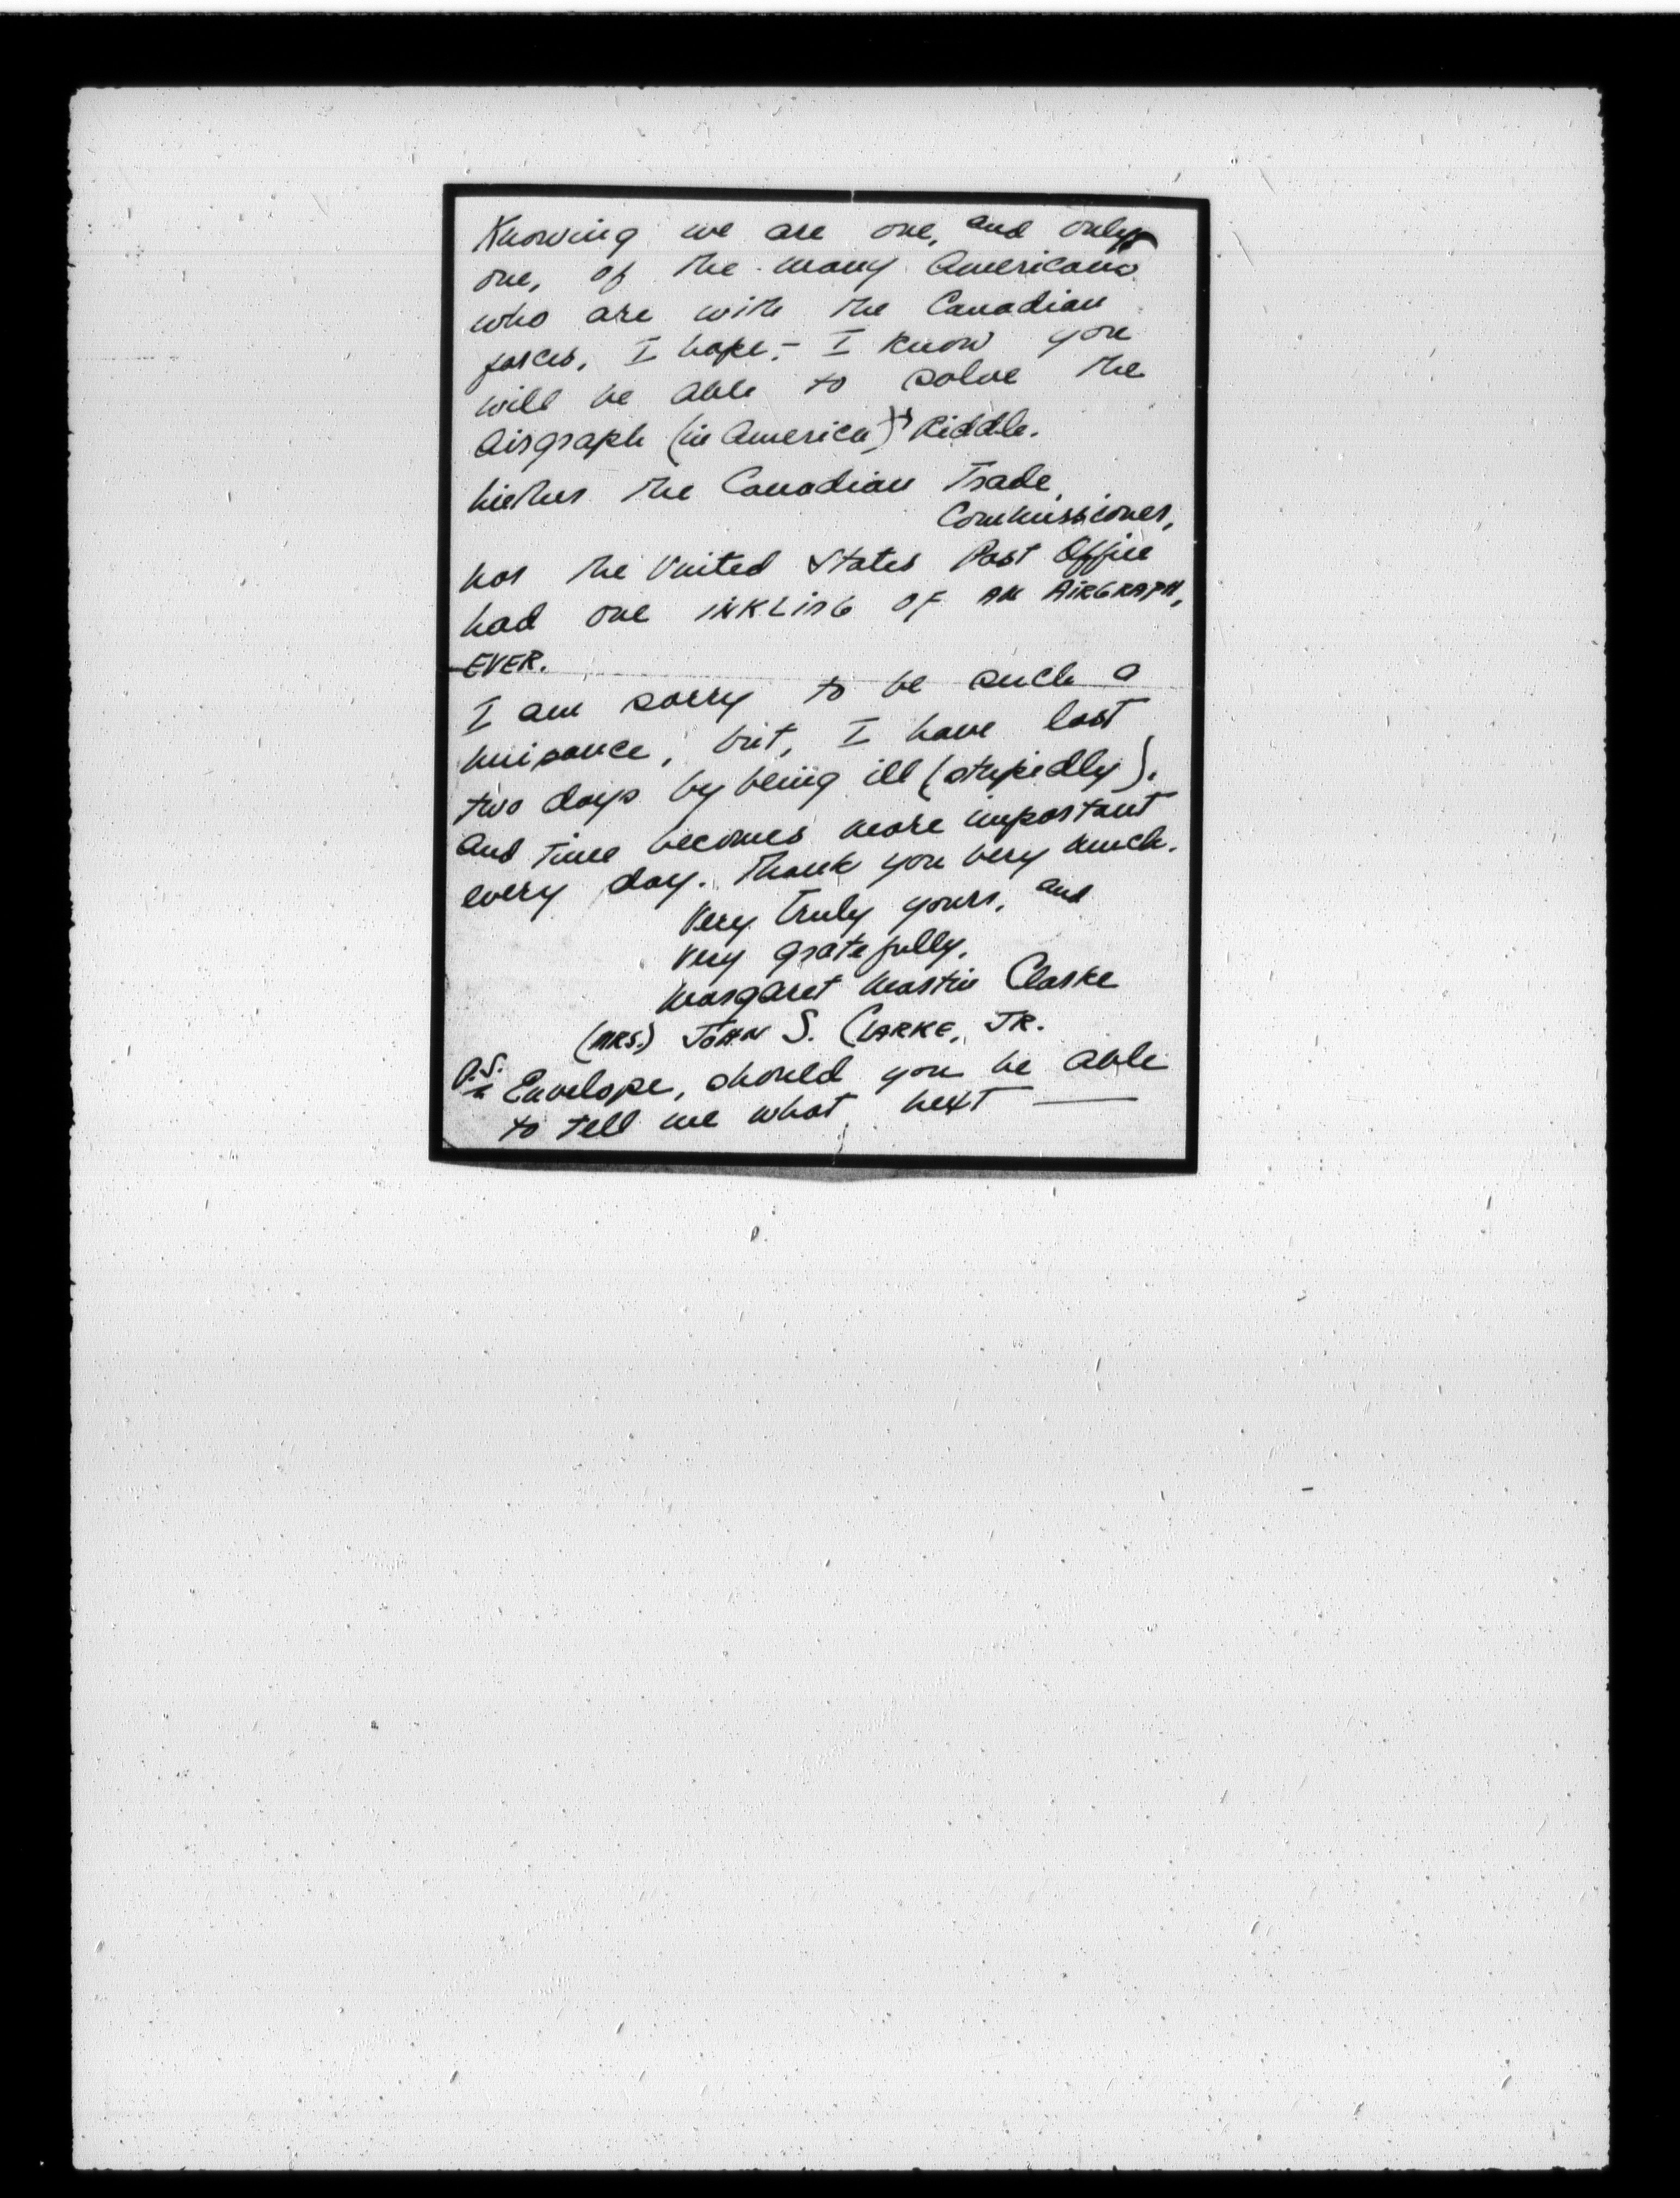 Knowing we are one, and only
one, of the many Americans
who are with the Canadian
forces, I hope,- I know you
will be able to solve the
Airgraph (in America)'s Riddle.
Niether the Canadian Trade
Commissioner,
nor the United States Post Office
had one INKLING OF AN AIRGRAPH,
EVER.
I am sorry to be such a
nuisance, but, I have lost
two days by being ill (stupidly).
And time becomes more important
every day. Thank you very much.
Very truly yours, and
very gratefully,
Margaret Martin Clarke
(MRS.) JOHN S. CLARKE, JR.
P.S. Envelope, should you be able
to tell me what next —